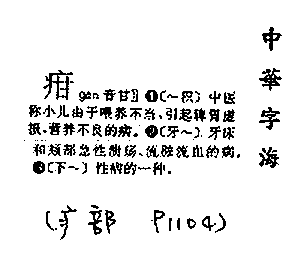 中華字海
疳 gān 音甘 ❶〔～积〕中医
称小儿由于喂养不当,引起脾胃虚
损、营养不良的病。❷〔牙～〕牙床
和颊部急性溃疡、流脓流血的病。
❸〔下～〕性病的一种。
(疒部 P1104)